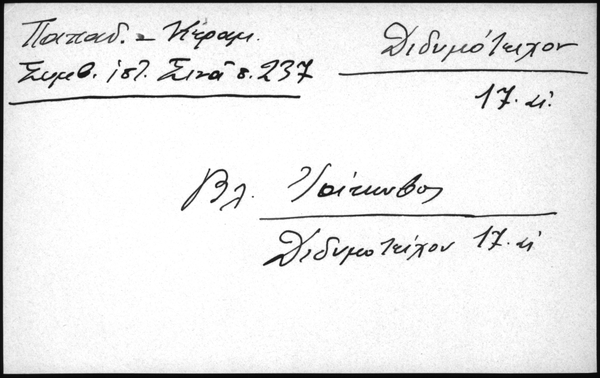 Παπαδ. - Κεραμ.
Συμβ. ἱστ. Σινᾶ σ. 237
Διδυμότειχον
17. αἰ.
Βλ. Ἰάκωβος
Διδυμοτείχου 17. αἰ